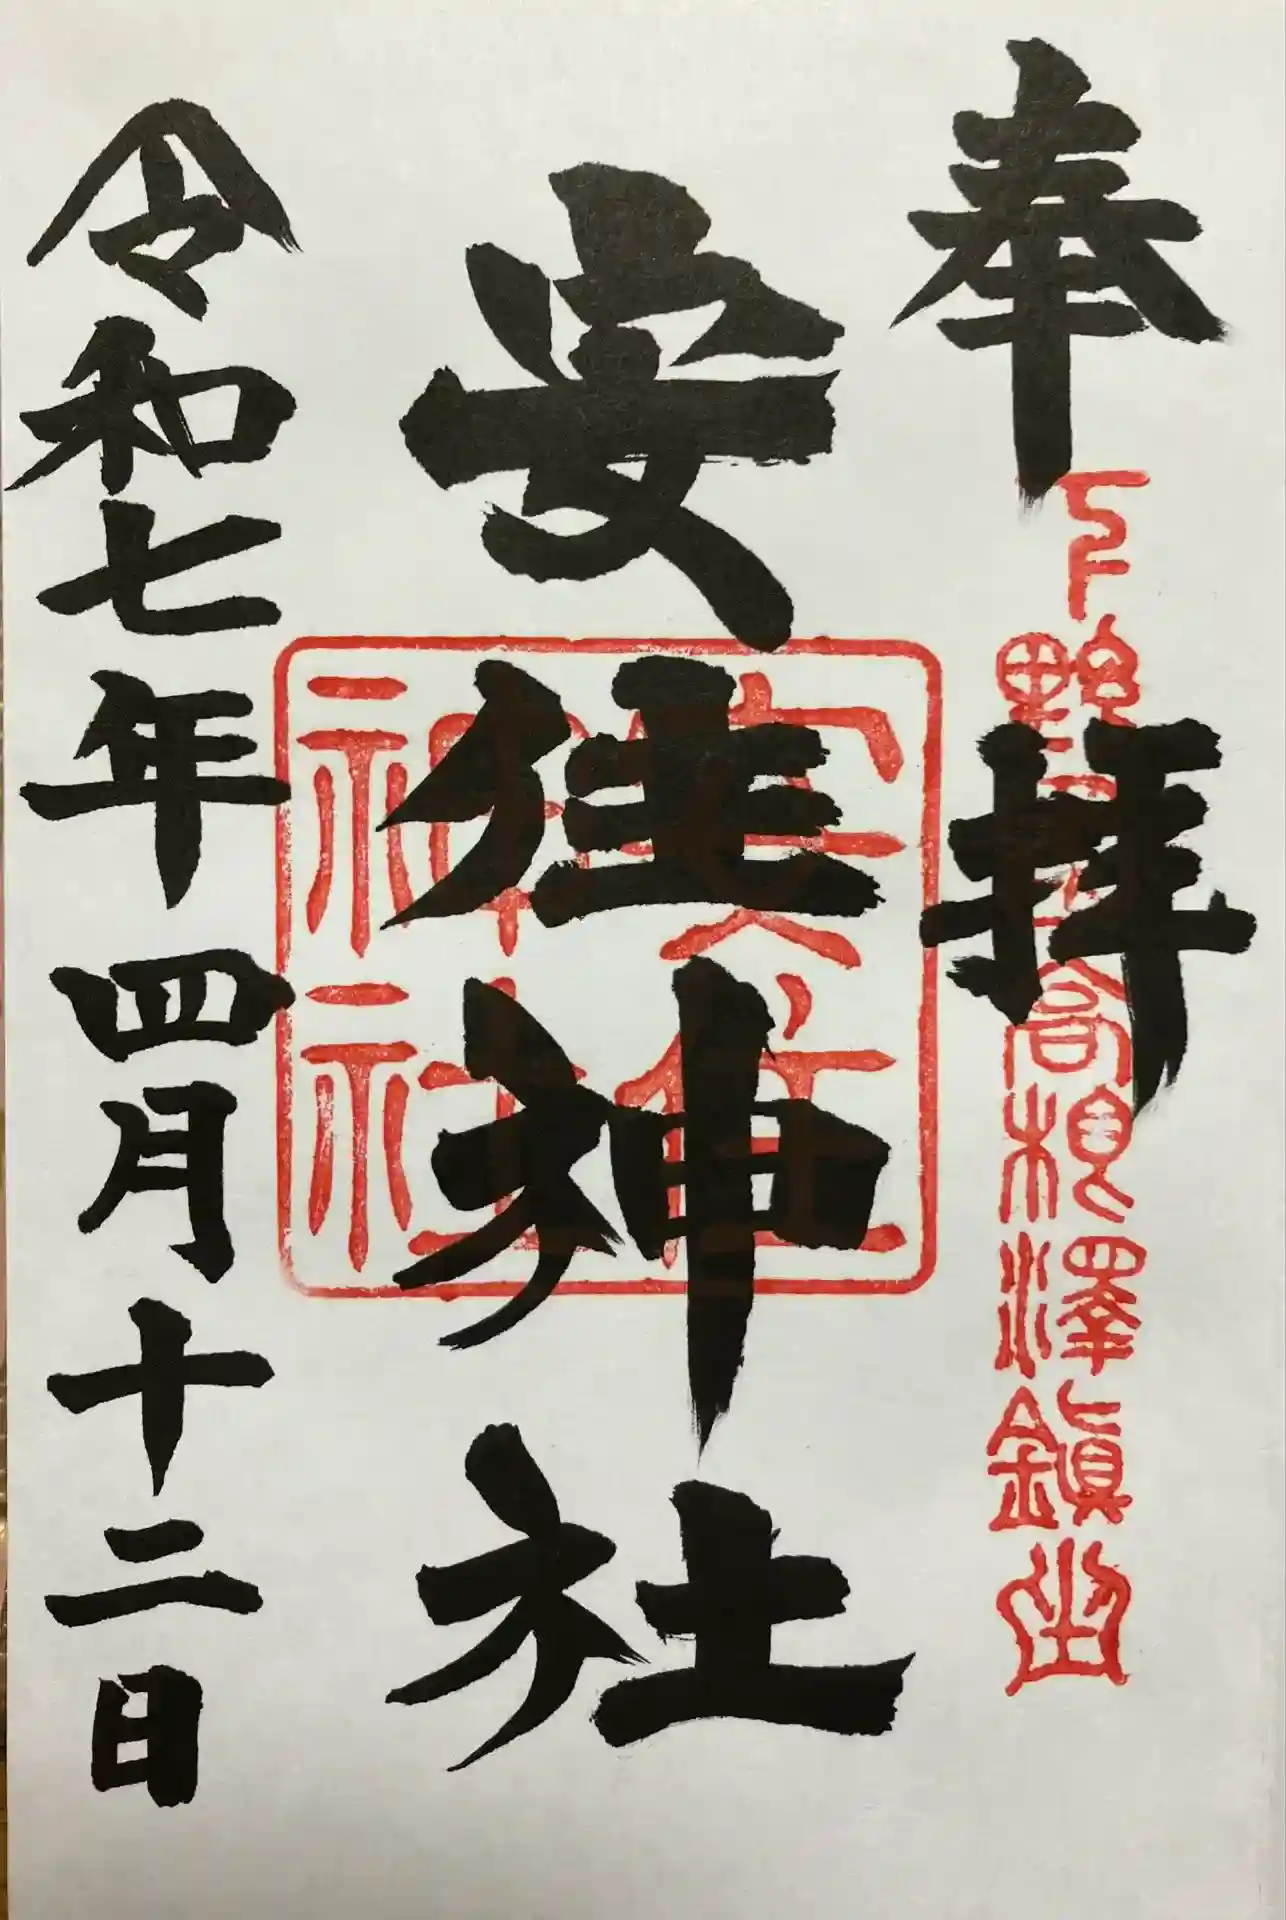 奉拝
下野國高根澤鎮座
安住神社
安住神社
令和七年四月十二日